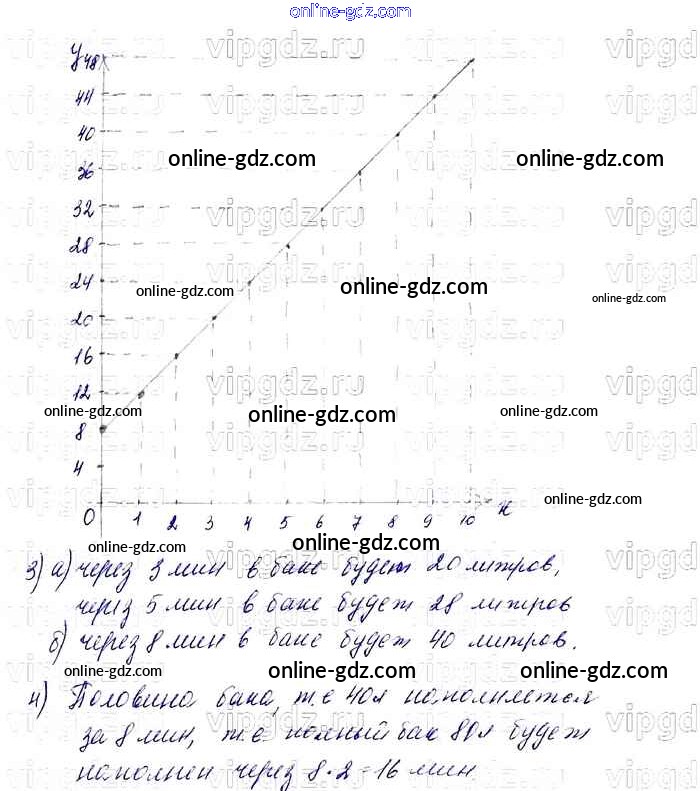 online-gdz.com
y
48
44
40
36
32
28
24
20
16
12
8
4
0 1 2 3 4 5 6 7 8 9 10 x
3) а) через 3 мин в баке будет 20 литров,
через 5 мин в баке будет 28 литров
б) через 8 мин в баке будет 40 литров.
4) Половина бака, т.е 40л наполняется
за 8 мин, т.е полный бак 80л будет
наполнен через 8·2=16 мин.
vipgdz.ru
online-gdz.com